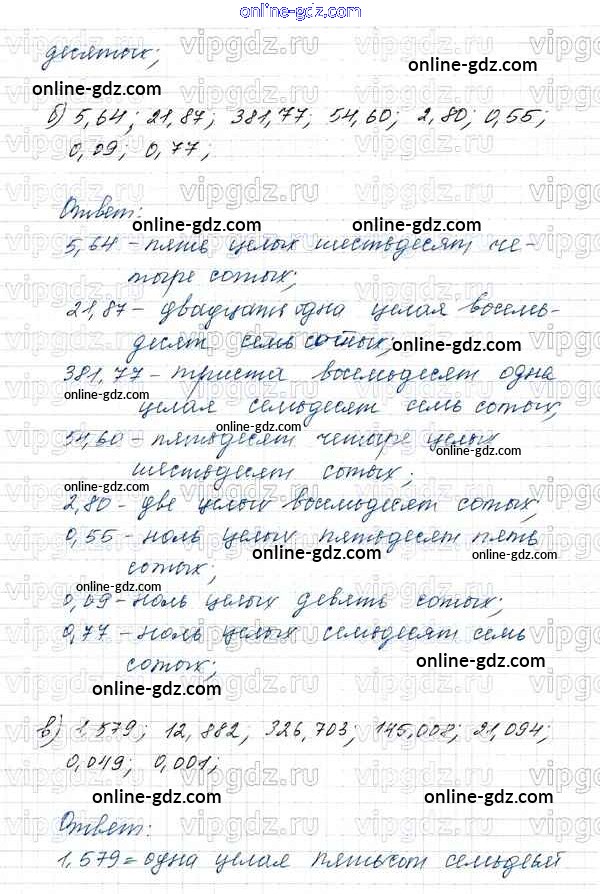 online-gdz.com
десятых;
online-gdz.com
б) 5,64; 21,87; 381,77; 54,60; 2,80; 0,55;
0,09; 0,77;
Ответ:
online-gdz.com
5,64 - пять целых шестьдесят че-
тыре сотых;
online-gdz.com
21,87 - двадцать одна целая восемь-
десят семь сотых;
online-gdz.com
381,77 - триста восемьдесят одна
online-gdz.com
целая семьдесят семь сотых,
54,60 - пятьдесят четыре целых
online-gdz.com
шестьдесят сотых;
online-gdz.com
2,80 - две целых восемьдесят сотых,
0,55 - ноль целых пятьдесят пять
online-gdz.com
online-gdz.com
сотых;
online-gdz.com
0,09 - ноль целых девять сотых;
0,77 - ноль целых семьдесят семь
online-gdz.com
сотых;
online-gdz.com
в) 1,579; 12,882, 326,703; 145,008; 21,094;
0,049; 0,001;
online-gdz.com
Ответ:
online-gdz.com
1,579 = одна целая пятьсот семьдевят
vipgdz.ru